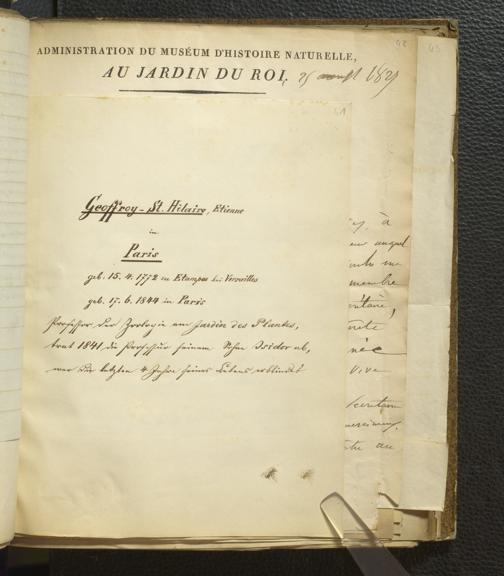 ADMINISTRATION DU MUSÉUM D'HISTOIRE NATURELLE,
AU JARDIN DU ROI, 25
42
43
41
Geoffroy-St. Hilaire, Etienne
in
Paris
geb. 15. 4. 1772 zu Etampes bei Versailles
geb. 19. 6. 1844 in Paris
Professor der Zoologie am Jardin des Plantes,
trat 1841 die Professur seinem Sohn Isidor ab,
war die letzten 4 Jahre seines Lebens erblindet
à
membre